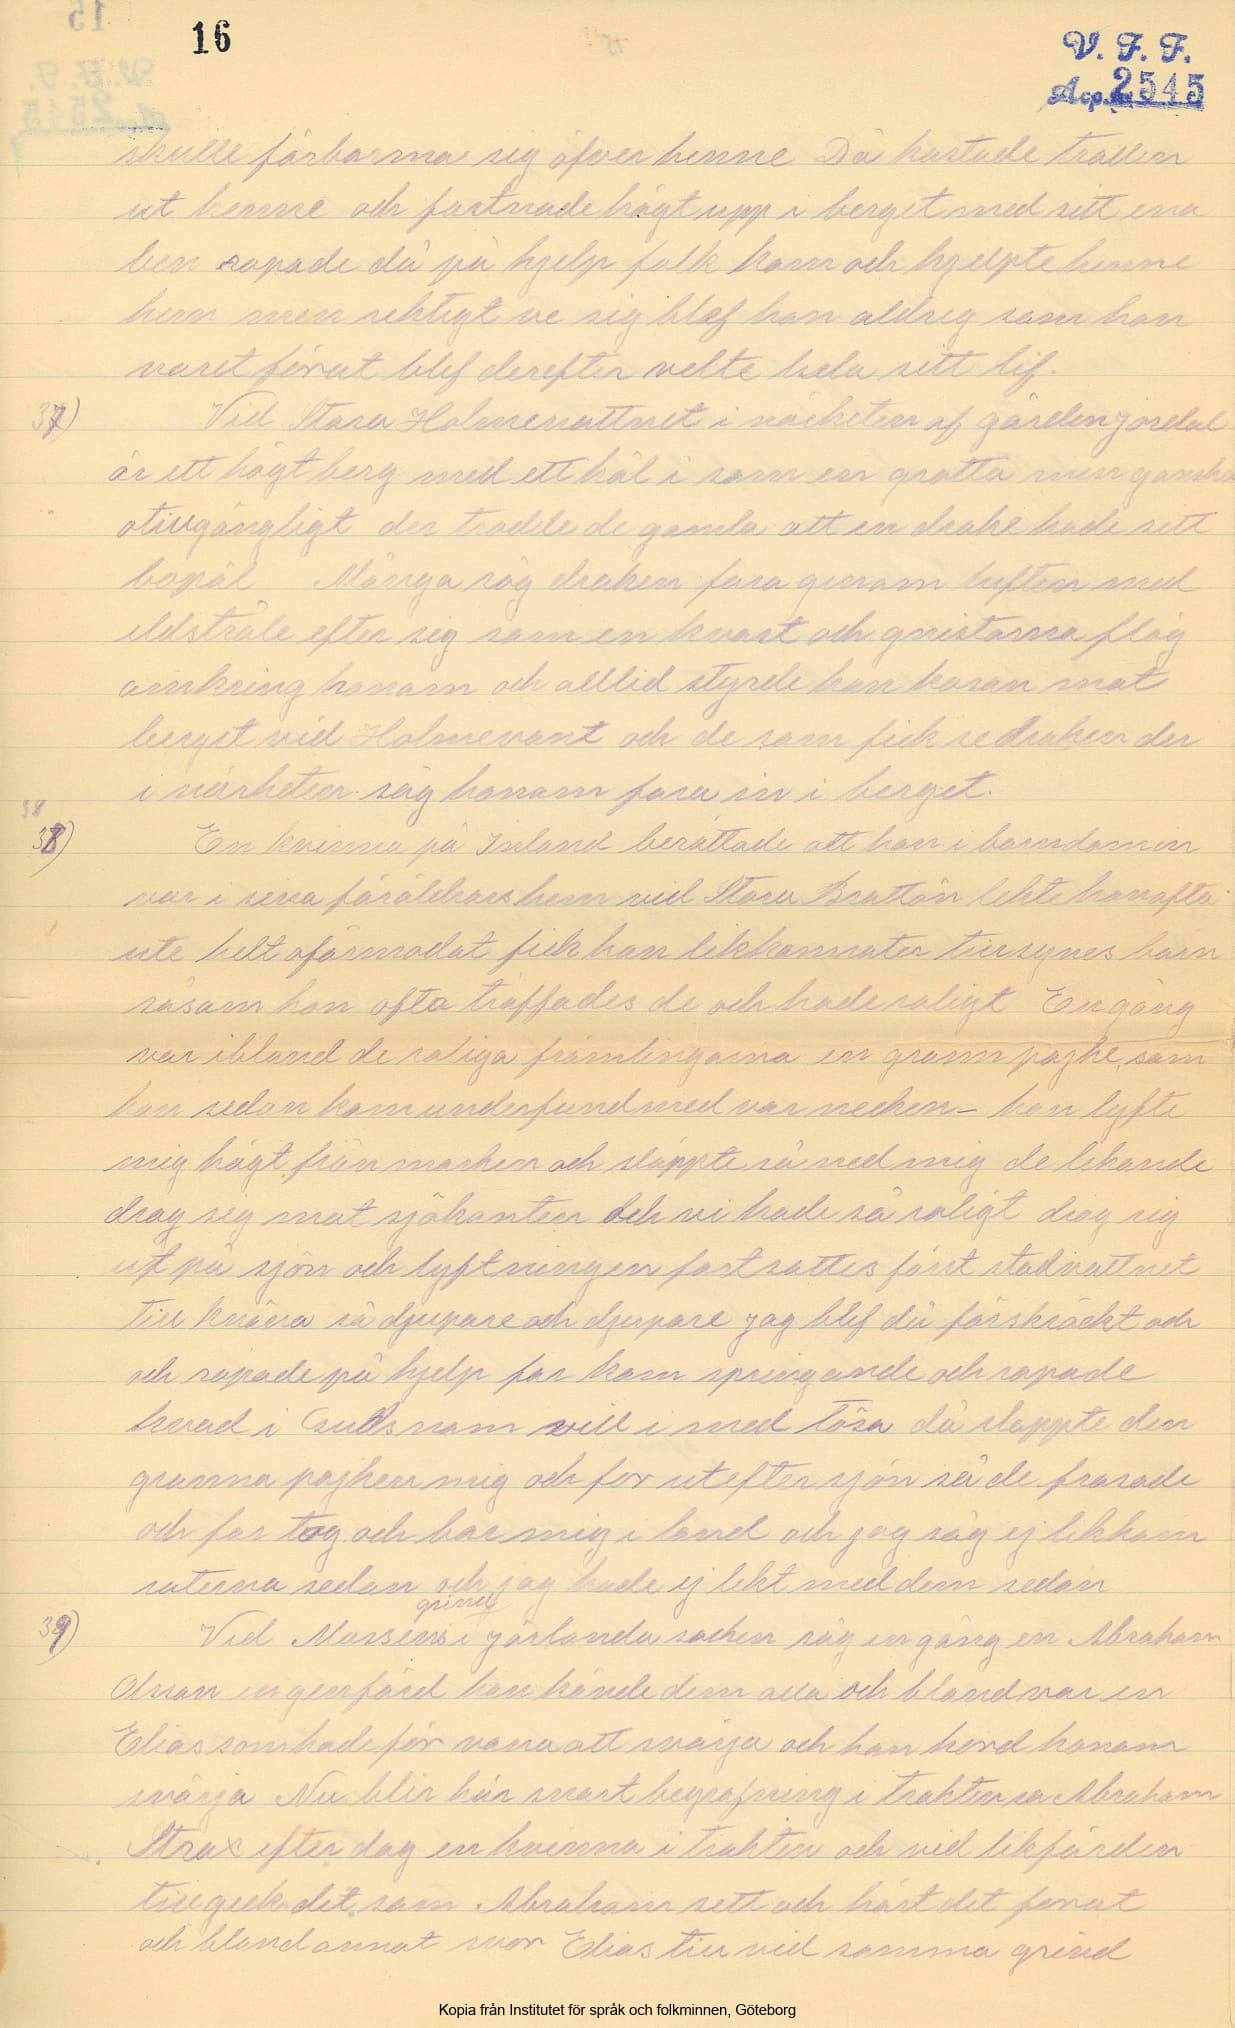 16
V. F. F.
Acp. 2545
skulle förbarma sig öfver henne Då kastade trollen
ut henne och fastnade högt upp i berget med sitt ena
ben ropade då på hjelp folk kom och hjelpte henne
hem men riktigt ve sig blef hon aldrig som hon
varet förut blef derefter velte hela sitt lif.
37) Vid Stora Holmevattnet i närheten af gården jordal
är ett högt berg med ett hål i som en grotta men ganska
otillgängligt der trodde de gamla att en drake hade sitt
bopäl Många såg draken fara genom luften med
eldstråle efter sig som en kvast och gnistorna flög
omkring honom och alltid styrde han kosan mot
berget vid Holmevant och de som fick se draken der
i närheten såg honom fara in i berget.
38
38) En kvinna på Inland berättade att hon i barndomen
var i sina föräldrars hem vid Stora Brattön lekte hon ofta
ute helt oförmodat fick hon lekkamrater till synes barn
såsom hon ofta träffades de och hade roligt En gång
var ibland de roliga främlingarna en grann pojke, som
hon sedan kom underfund med var necken – han lyfte
mig högt från marken och släppte så ned mig de lekande
drog sig mot sjökanten och vi hade så roligt drog sig
ut på sjön och lyftningen fortsattes först stod vattnet
till knäna så djupare och djupare jag blef då förskräckt och
och ropade på hjelp far kom springande och ropade
hvad i Guds namn vill i med tösa då slappte den
granna pojken mig och for utefter sjön så de frasade
och far tog och bar mig i land och jag såg ej lekkam
raterna sedan och jag hade ej lekt med dem sedan
grind
39) Vid Mossens i Jörlanda socken såg en gång en Abraham
Olsson en genfärd han kände dem alla och bland var en
Elias som hade för vana att svärja och han hörd honom
svärja Nu blir här snart begrafning i trakten sa Abraham
Strax efter dog en kvinna i trakten och vid likfärden
tillgeck det som Abraham sett och hört det förut
och bland annat svor Elias till vid samma grind
Kopia från Institutet för språk och folkminnen, Göteborg